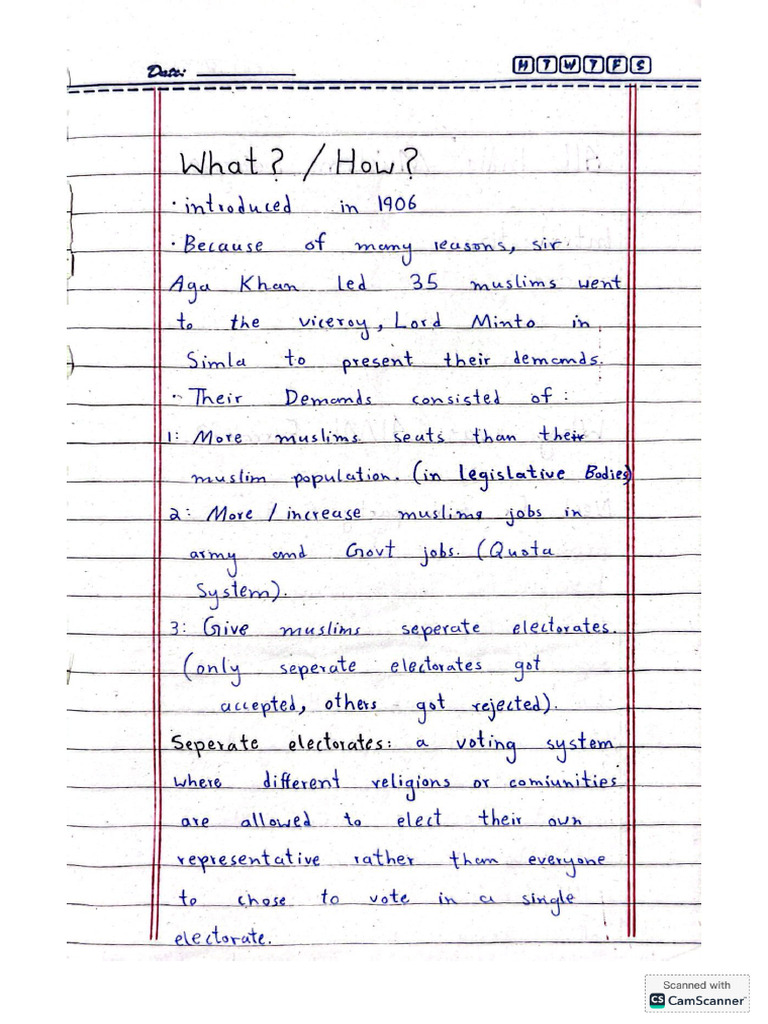 Date:
M T W T F S
What? / How?
· introduced in 1906
· Because of many reasons, sir
Aga Khan led 35 muslims went
to the viceroy, Lord Minto in
Simla to present their demands.
· Their Demands consisted of :
1: More muslims seats than their
muslim population. (in legislative Bodies)
2: More / increase muslims jobs in
army and Govt jobs. (Quota
System).
3: Give muslims seperate electorates.
(only seperate electorates got
accepted, others got rejected).
Seperate electorates: a voting system
where different religions or comiunities
are allowed to elect their own
representative rather than everyone
to chose to vote in a single
electorate.
Scanned with
CS CamScanner